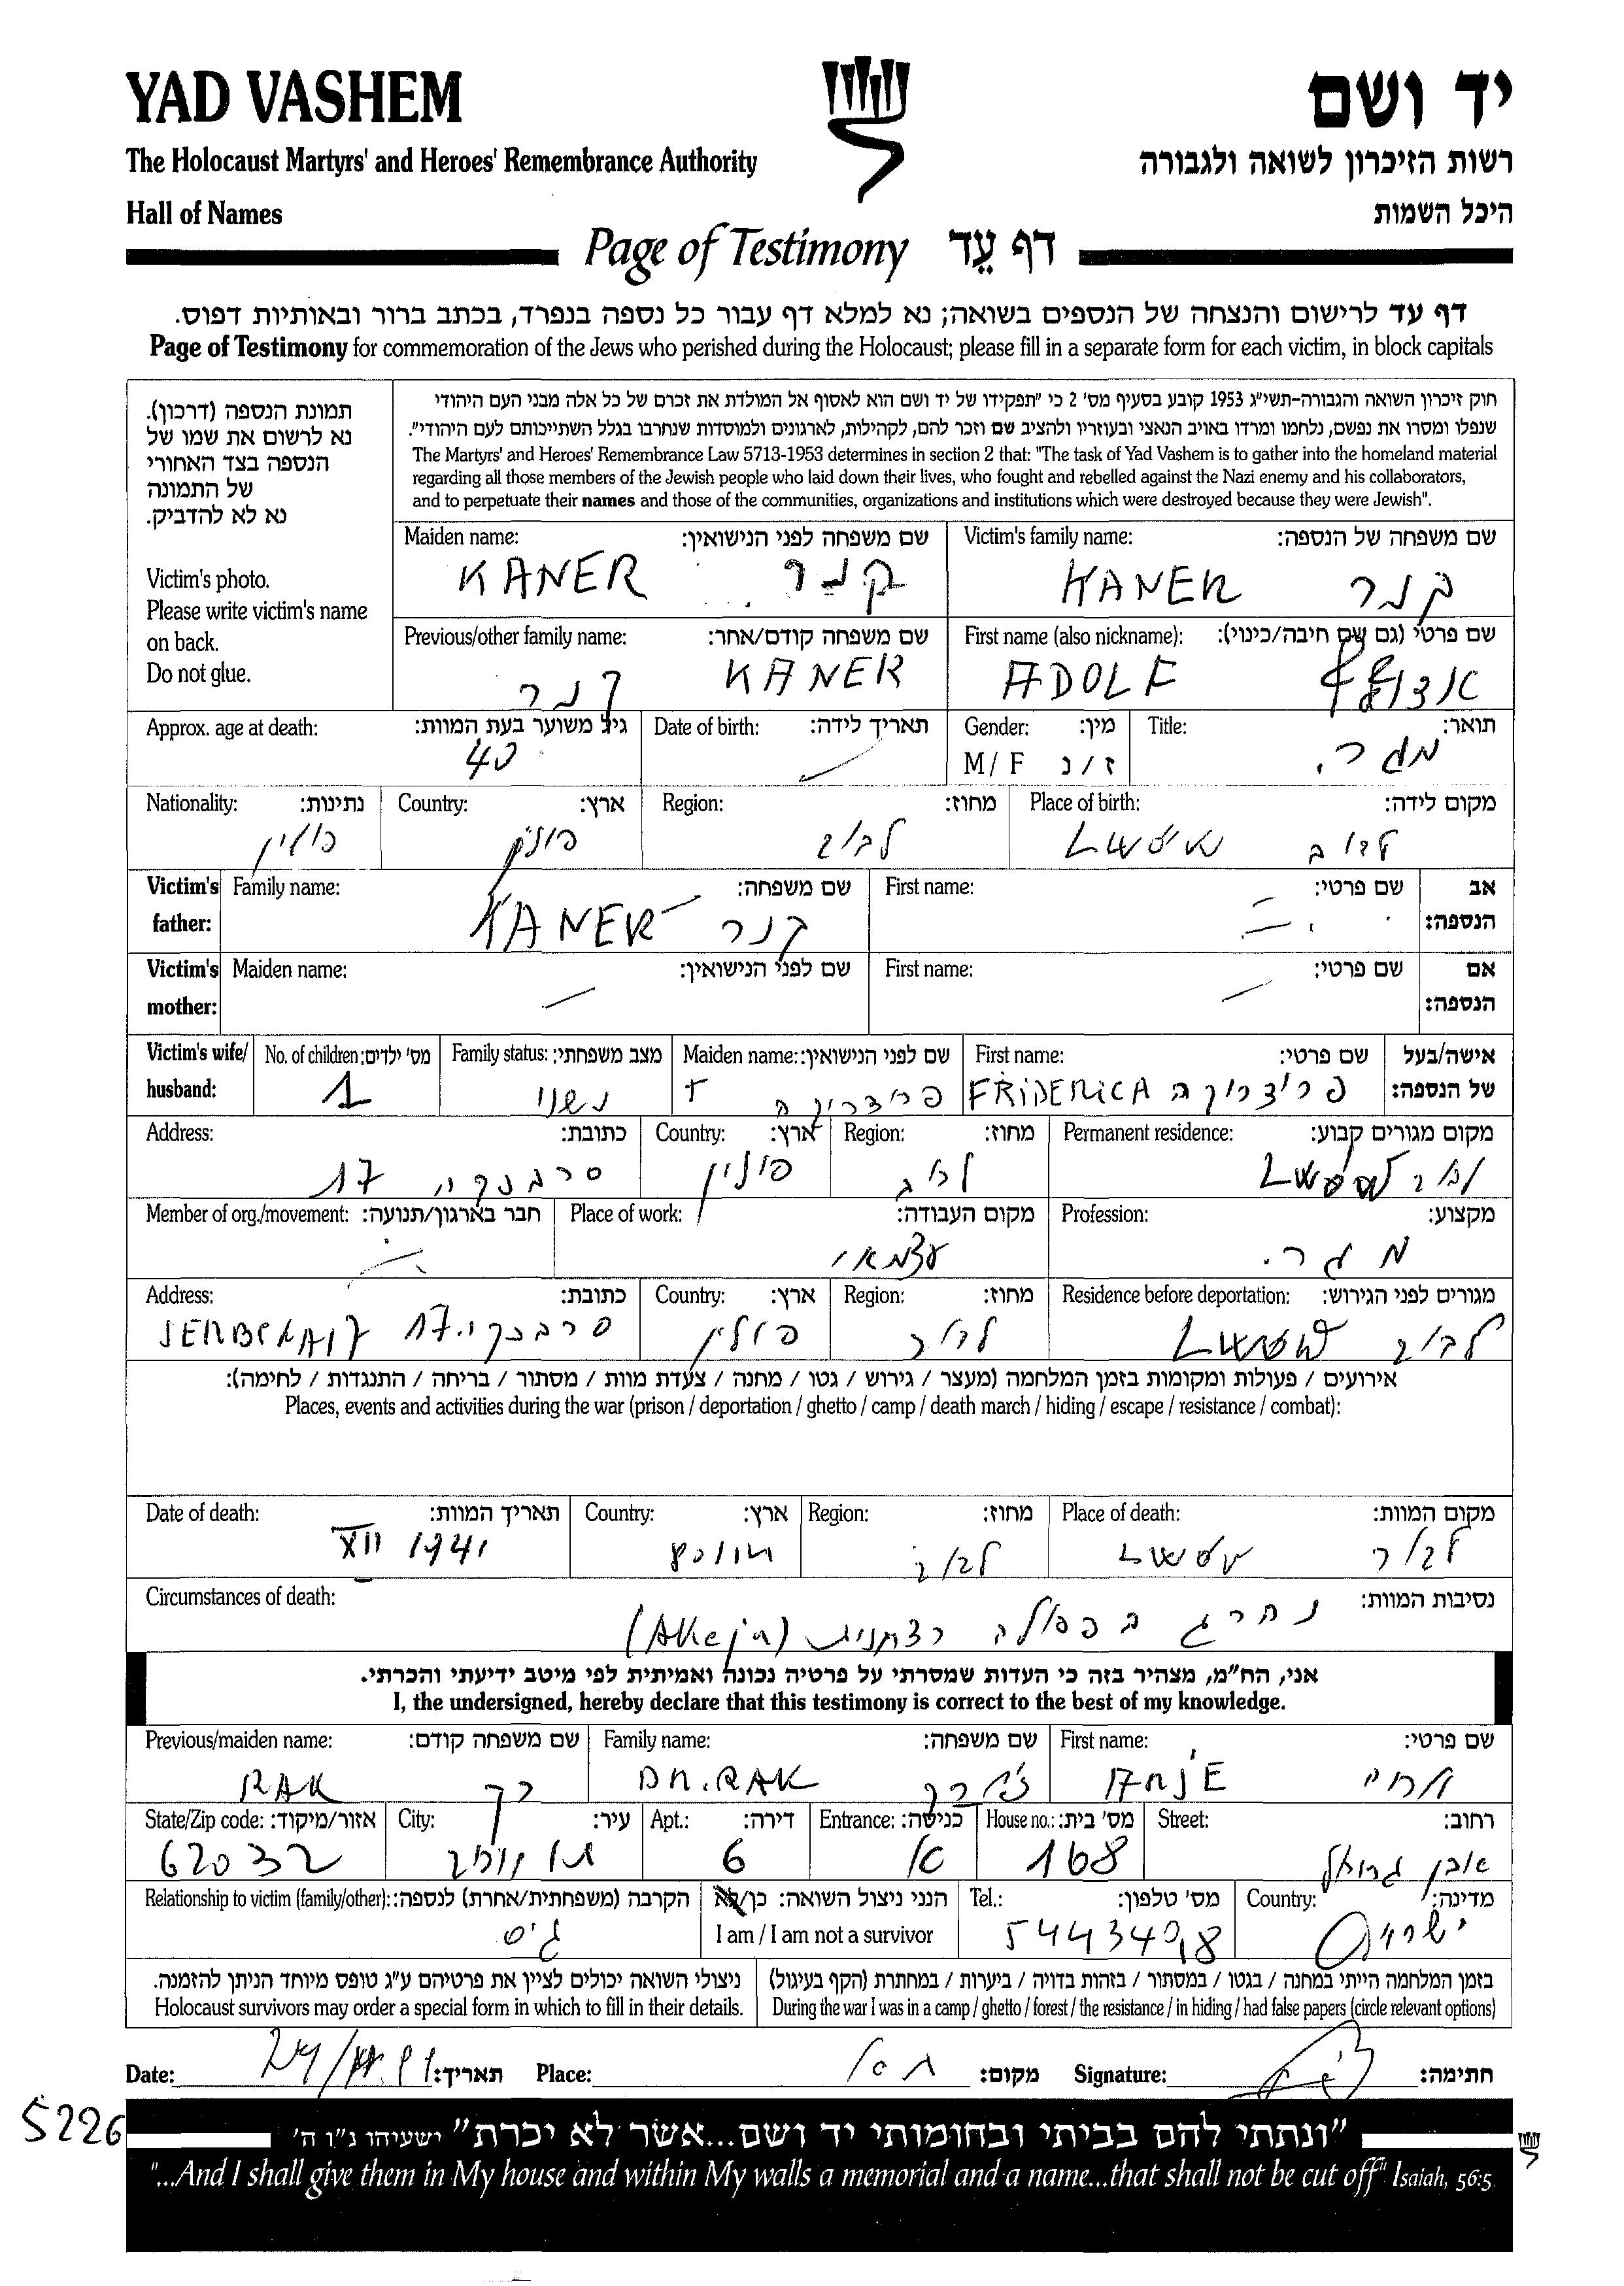 YAD VASHEM
יד ושם
The Holocaust Martyrs' and Heroes' Remembrance Authority
רשות הזיכרון לשואה ולגבורה
Hall of Names
היכל השמות
Page of Testimony דף עֵד
דף עד לרישום והנצחה של הנספים בשואה; נא למלא דף עבור כל נספה בנפרד, בכתב ברור ובאותיות דפוס.
Page of Testimony for commemoration of the Jews who perished during the Holocaust; please fill in a separate form for each victim, in block capitals
תמונת הנספה (דרכון).
נא לרשום את שמו של
הנספה בצד האחורי
של התמונה
נא לא להדביק.
Victim's photo.
Please write victim's name
on back.
Do not glue.
חוק זיכרון השואה והגבורה-תשי"ג 1953 קובע בסעיף מס' 2 כי "תפקידו של יד ושם הוא לאסוף אל המולדת את זכרם של כל אלה מבני העם היהודי
שנפלו ומסרו את נפשם, נלחמו ומרדו באויב הנאצי ובעוזריו ולהציב שם וזכר להם, לקהילות, לארגונים ולמוסדות שנחרבו בגלל השתייכותם לעם היהודי".
The Martyrs' and Heroes' Remembrance Law 5713-1953 determines in section 2 that: "The task of Yad Vashem is to gather into the homeland material
regarding all those members of the Jewish people who laid down their lives, who fought and rebelled against the Nazi enemy and his collaborators,
and to perpetuate their names and those of the communities, organizations and institutions which were destroyed because they were Jewish".
Victim's family name: שם משפחה של הנספה:
KANER קנר
Maiden name: שם משפחה לפני הנישואין:
KANER קנר
First name (also nickname): שם פרטי (גם שם חיבה/כינוי):
ADOLF אדולף
Previous/other family name: שם משפחה קודם/אחר:
KANER קנר
Title: תואר:
Gender: מין:
M / F ז / נ
Date of birth: תאריך לידה:
Approx. age at death: גיל משוער בעת המוות:
40
Place of birth: מקום לידה:
לבוב
Region: מחוז:
לבוב
Country: ארץ:
פולין
Nationality: נתינות:
פולין
Victim's father: אב הנספה:
First name: שם פרטי:
Family name: שם משפחה:
KANER קנר
Victim's mother: אם הנספה:
First name: שם פרטי:
Maiden name: שם לפני הנישואין:
Victim's wife/husband: אישה/בעל של הנספה:
First name: שם פרטי:
FRIDERICA פרידריקה
Maiden name: שם לפני הנישואין:
פרידריקה
Family status: מצב משפחתי:
נשוי
No. of children: מס' ילדים:
1
Permanent residence: מקום מגורים קבוע:
לבוב
Region: מחוז:
לבוב
Country: ארץ:
פולין
Address: כתובת:
סרבסקה 17
Profession: מקצוע:
Place of work: מקום העבודה:
עצמאי
Member of org./movement: חבר בארגון/תנועה:
Residence before deportation: מגורים לפני הגירוש:
לבוב
Region: מחוז:
לבוב
Country: ארץ:
פולין
Address: כתובת:
17
אירועים / פעולות ומקומות בזמן המלחמה (מעצר / גירוש / גטו / מחנה / צעדת מוות / מסתור / בריחה / התנגדות / לחימה):
Places, events and activities during the war (prison / deportation / ghetto / camp / death march / hiding / escape / resistance / combat):
Place of death: מקום המוות:
לבוב
Region: מחוז:
לבוב
Country: ארץ:
Date of death: תאריך המוות:
XII 1941
Circumstances of death: נסיבות המוות:
נהרג בפעולה רצחנית (Akcja)
אני, הח"מ, מצהיר בזה כי העדות שמסרתי על פרטיה נכונה ואמיתית לפי מיטב ידיעתי והכרתי.
I, the undersigned, hereby declare that this testimony is correct to the best of my knowledge.
First name: שם פרטי:
Family name: שם משפחה:
DR. RAK ד"ר רק
Previous/maiden name: שם משפחה קודם:
RAK רק
Street: רחוב:
אבן גבירול
House no.: מס' בית:
168
Entrance: כניסה:
Apt.: דירה:
6
City: עיר:
State/Zip code: אזור/מיקוד:
62032
Country: מדינה:
ישראל
Tel.: מס' טלפון:
הנני ניצול השואה: כן/לא
I am / I am not a survivor
5443498
Relationship to victim (family/other): הקרבה (משפחתית/אחרת) לנספה:
גיס
בזמן המלחמה הייתי במחנה / בגטו / במסתור / בזהות בדויה / ביערות / במחתרת (הקף בעיגול)
During the war I was in a camp / ghetto / forest / the resistance / in hiding / had false papers (circle relevant options)
ניצולי השואה יכולים לציין את פרטיהם ע"ג טופס מיוחד הניתן להזמנה.
Holocaust survivors may order a special form in which to fill in their details.
Date: תאריך: Place: מקום: Signature: חתימה:
5226
"ונתתי להם בביתי ובחומותי יד ושם...אשר לא יכרת" ישעיהו נ"ו ה'
"...And I shall give them in My house and within My walls a memorial and a name...that shall not be cut off" Isaiah, 56:5